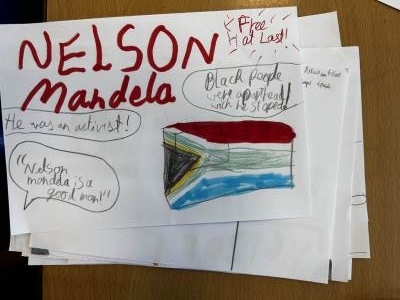 NELSON
Mandela
Free
at Last!
Black people
were apartheid
wich he stoped
He was an activist!
"Nelson
mandela is a
good man!"